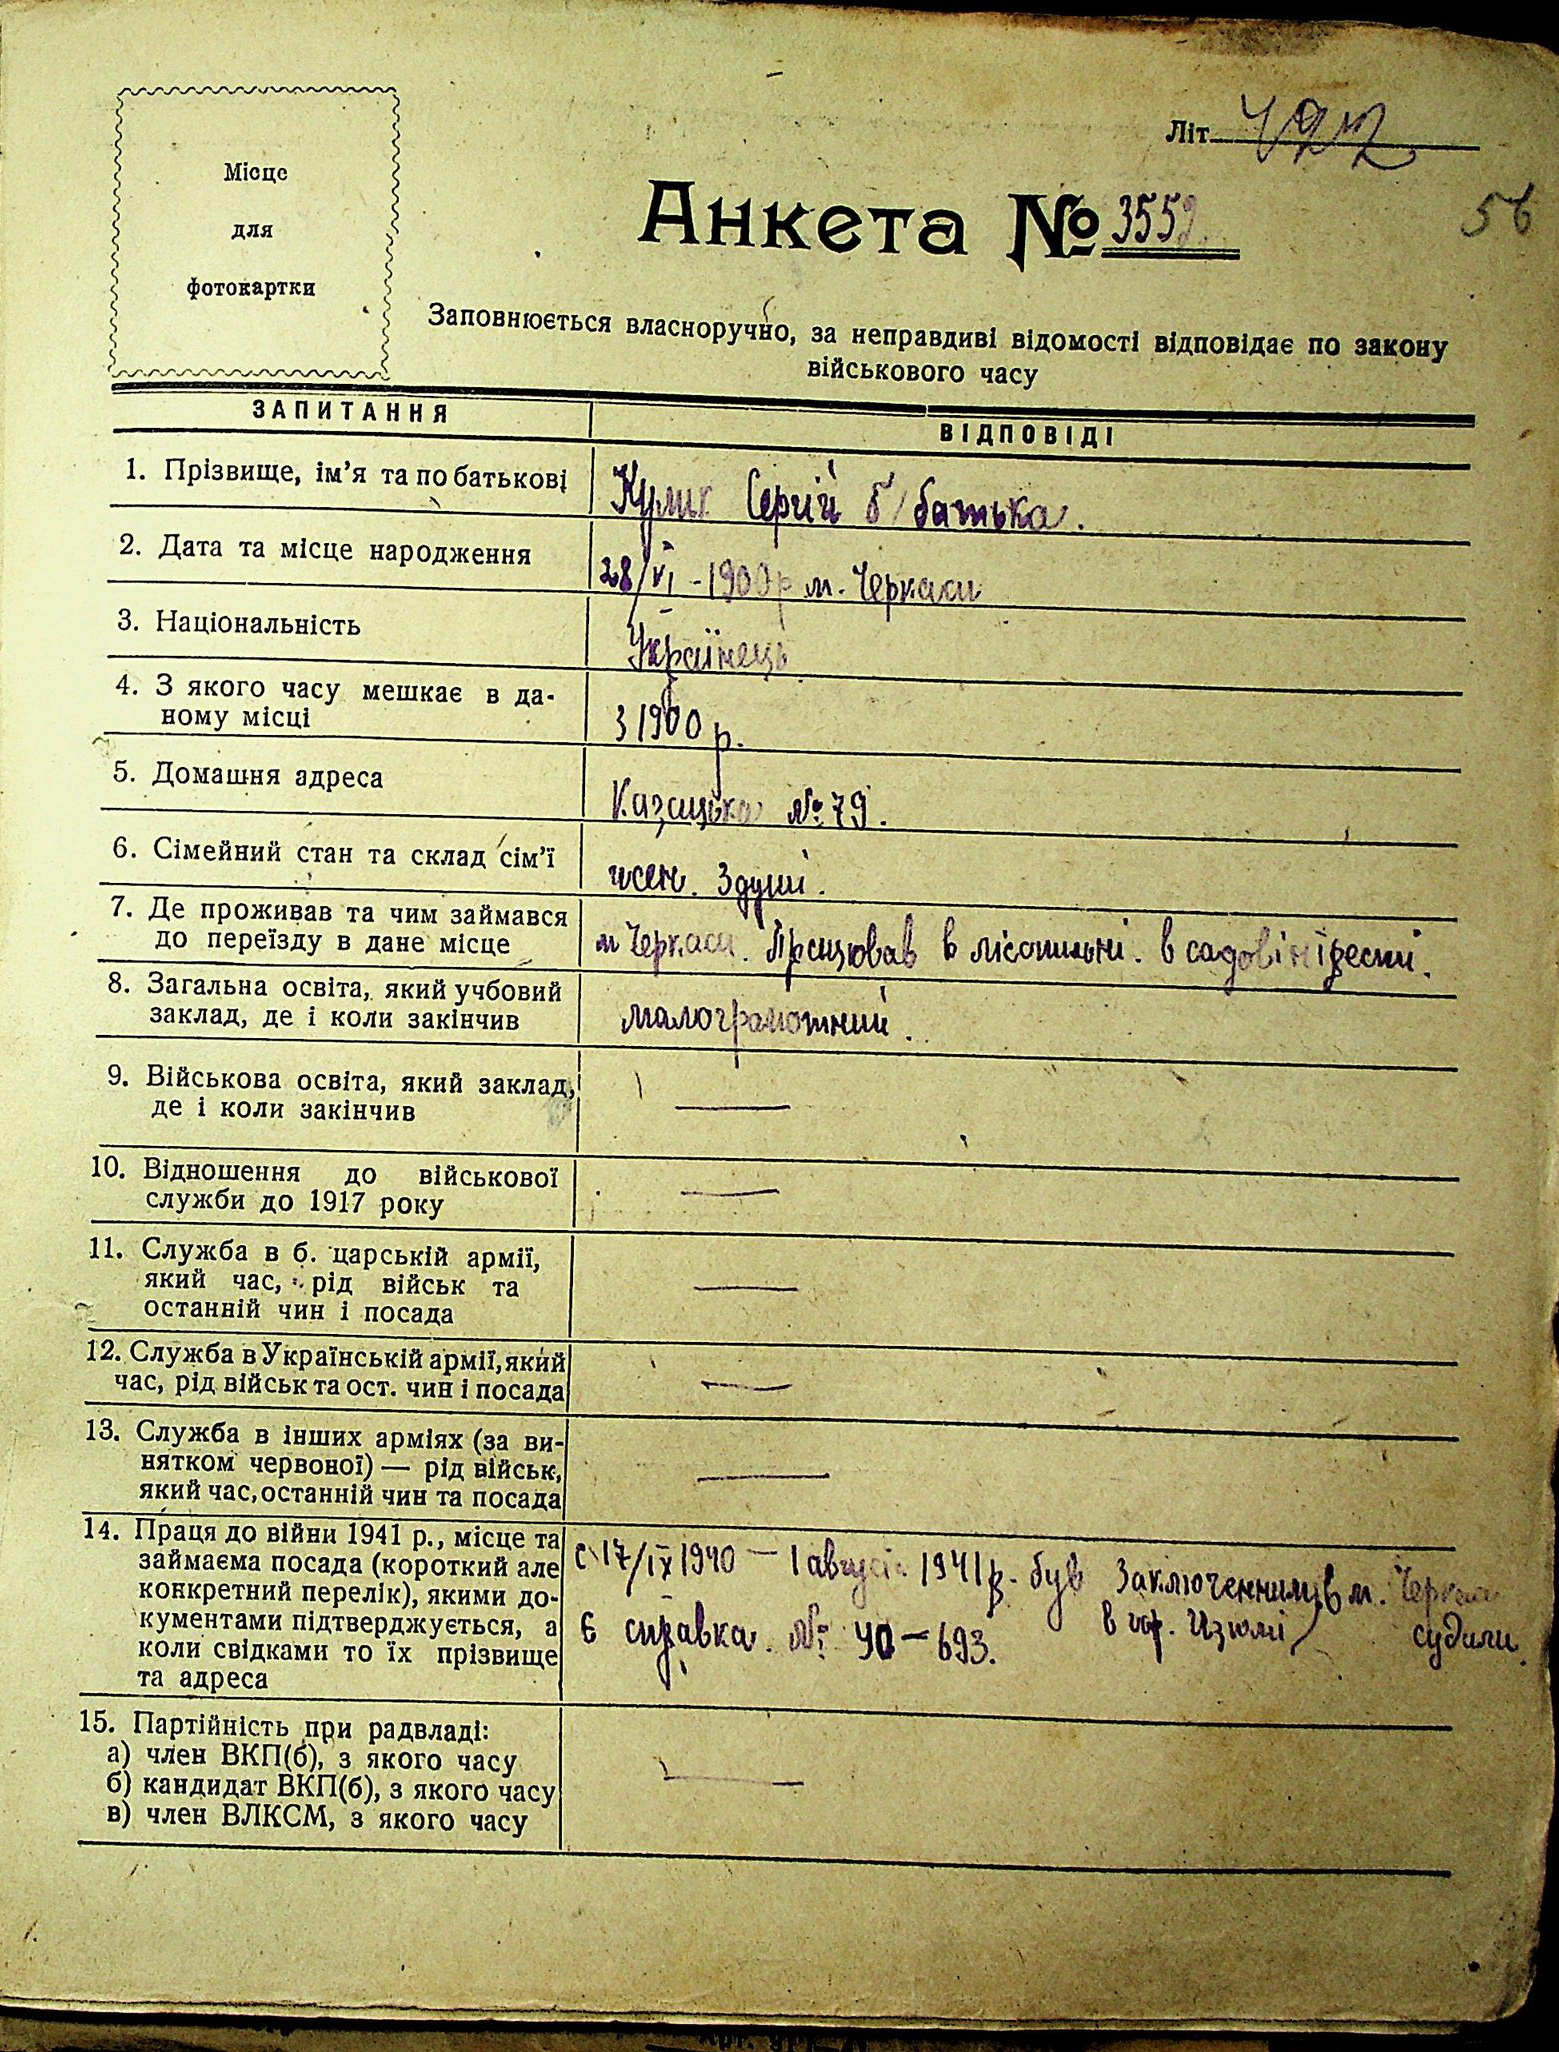 Місце
для
фотокартки
Літ
56
Анкета № 3552
Заповнюється власноручно, за неправдиві відомості відповідає по закону
військового часу
ЗАПИТАННЯ
ВІДПОВІДІ
1. Прізвище, ім'я та по батькові
Кулик Сергій б/батька.
2. Дата та місце народження
28/VI - 1900 р м. Черкаси
3. Національність
Українець
4. З якого часу мешкає в да-
ному місці
З 1900 р.
5. Домашня адреса
Казацька № 79.
6. Сімейний стан та склад сім'ї
жен. 3 душі.
7. Де проживав та чим займався
до переїзду в дане місце
м Черкаси. Працював в лісопильні. в
8. Загальна освіта, який учбовий
заклад, де і коли закінчив
малограмотний.
9. Військова освіта, який заклад,
де і коли закінчив
—
10. Відношення до військової
служби до 1917 року
—
11. Служба в б. царській армії,
який час, рід військ та
останній чин і посада
—
12. Служба в Українській армії, який
час, рід військ та ост. чин і посада
—
13. Служба в інших арміях (за ви-
нятком червоної) — рід військ,
який час, останній чин та посада
—
14. Праця до війни 1941 р., місце та
займаєма посада (короткий але
конкретний перелік), якими до-
кументами підтверджується, а
коли свідками то їх прізвище
та адреса
с 17/IX 1940 — 1 август 1941 р. був Заключенним в м. Черкаси
Є справка. № 40-693. в гор. Изюмі) судили.
15. Партійність при радвладі:
а) член ВКП(б), з якого часу
б) кандидат ВКП(б), з якого часу
в) член ВЛКСМ, з якого часу
—